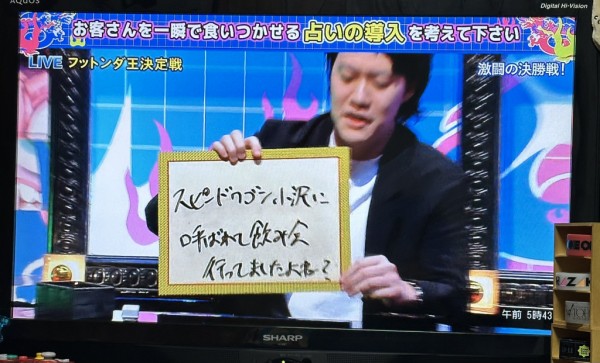 AQUOS
Digital Hi-Vision
お客さんを一瞬で食いつかせる占いの導入を考えて下さい
LIVE フットンダ王決定戦
激闘の決勝戦!
スピードワゴン小沢に
呼ばれて飲み会
行ってましたよね?
午前 5:43
SHARP